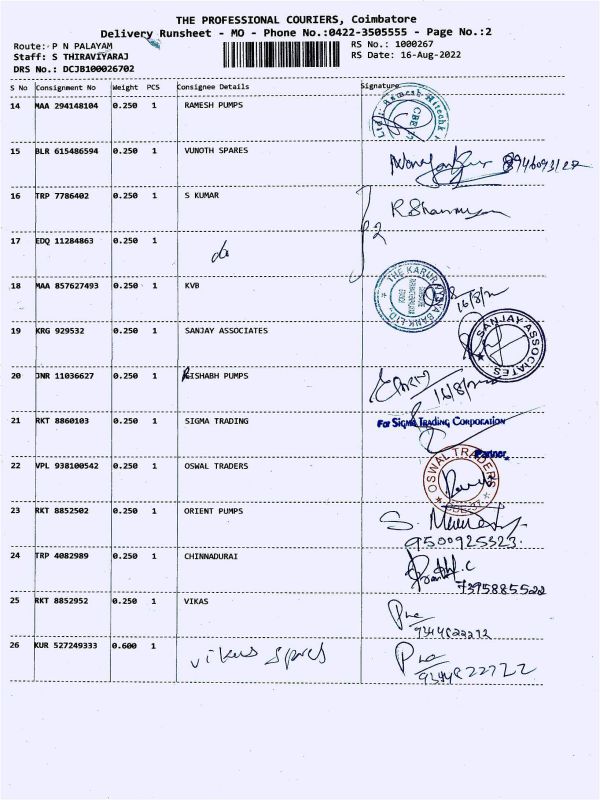 THE PROFESSIONAL COURIERS, Coimbatore
Delivery Runsheet - MO - Phone No.:0422-3505555 - Page No.:2
Route: P N PALAYAM
RS No.: 1000267
Staff: S THIRAVIYARAJ
RS Date: 16-Aug-2022
DRS No.: DCJB100026702
S No Consignment No Weight PCS Consignee Details Signature
14 MAA 294148104 0.250 1 RAMESH PUMPS
15 BLR 615486594 0.250 1 VUNOTH SPARES
16 TRP 7786402 0.250 1 S KUMAR
17 EDQ 11284863 0.250 1 do
18 MAA 857627493 0.250 1 KVB 16/8/
19 KRG 929532 0.250 1 SANJAY ASSOCIATES SANJAY ASSOCIATES
20 JNR 11036627 0.250 1 RISHABH PUMPS 16/8/
21 RKT 8860103 0.250 1 SIGMA TRADING For SIGMA TRADING CORPORATION
Partner
22 VPL 938100542 0.250 1 OSWAL TRADERS OSWAL TRADERS
23 RKT 8852502 0.250 1 ORIENT PUMPS S.
9500925323.
24 TRP 4082989 0.250 1 CHINNADURAI
7395885522
25 RKT 8852952 0.250 1 VIKAS
26 KUR 527249333 0.600 1 vikas spares
9344822722